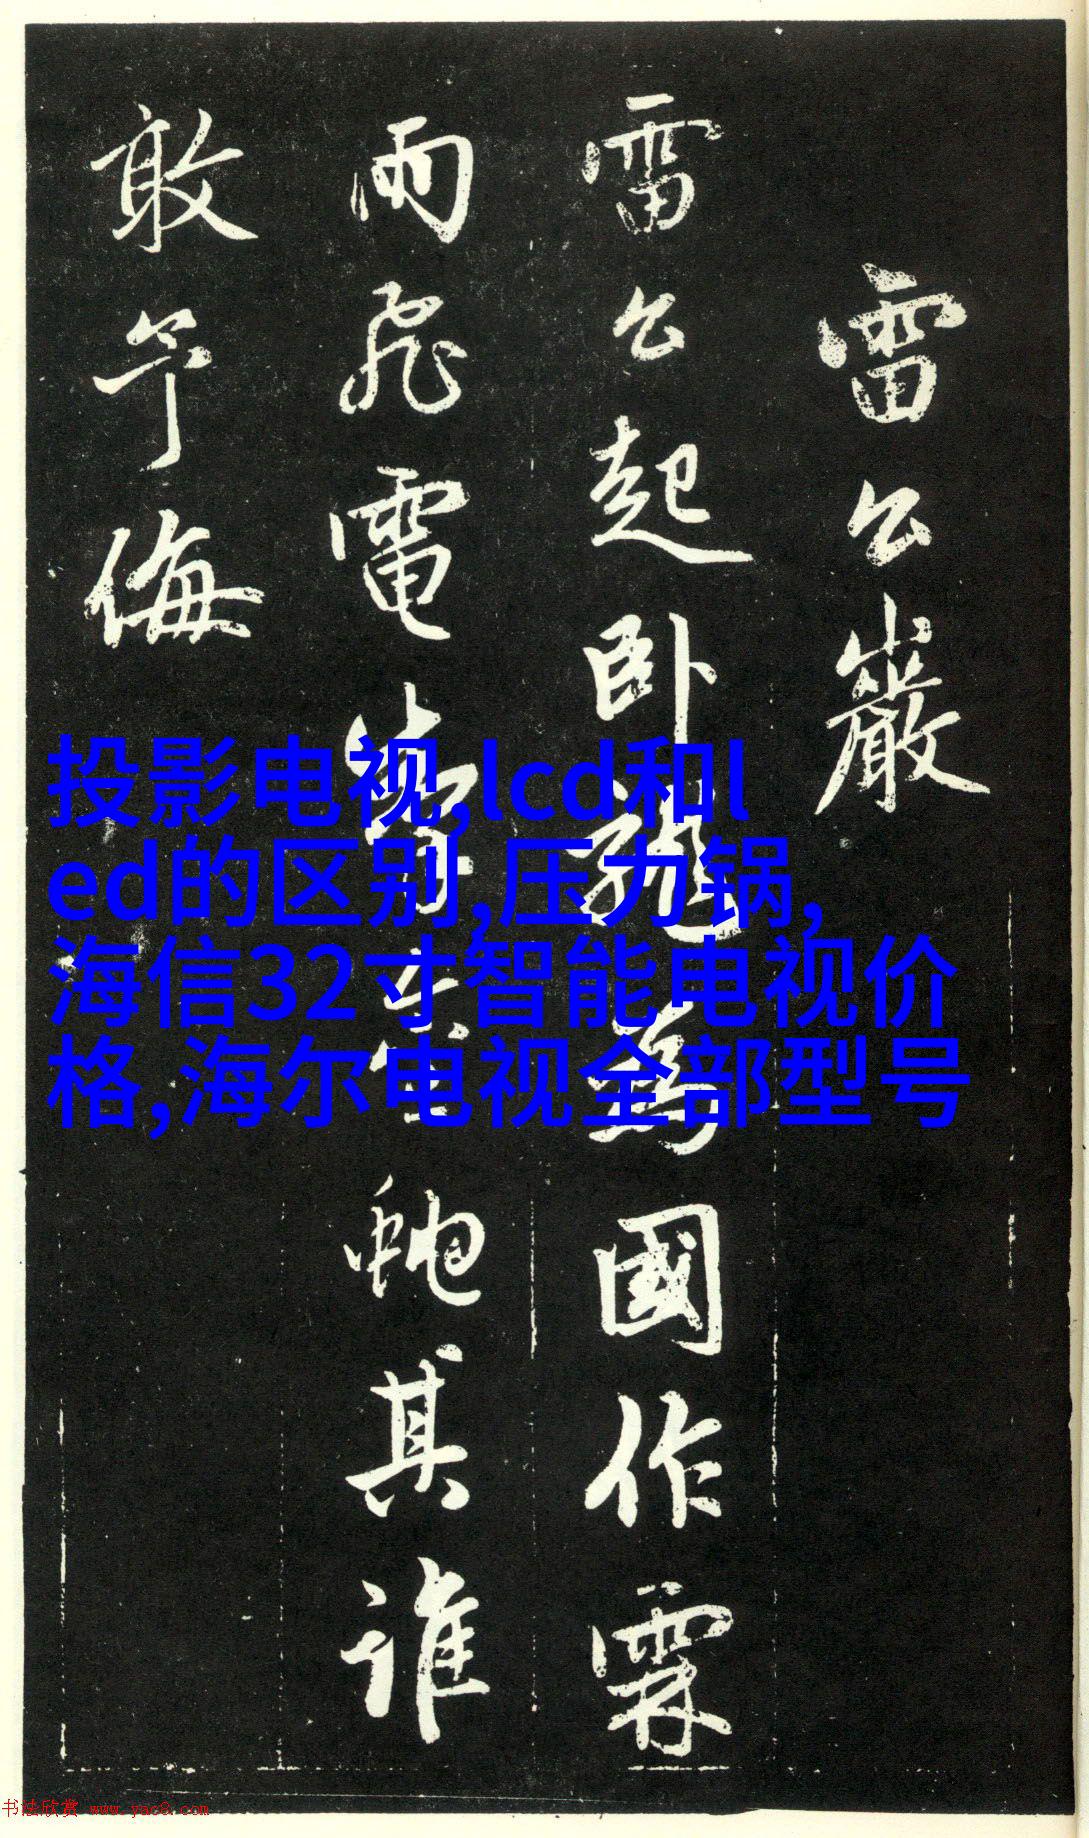 雷公巖
雷公起卧龍為國作霖
雨飛電掣金蛇其誰
敢予侮
投影电视,lcd和l
ed的区别,压力锅,
海信32寸智能电视价
格,海尔电视全部型号
书法欣赏 www.yac8.com